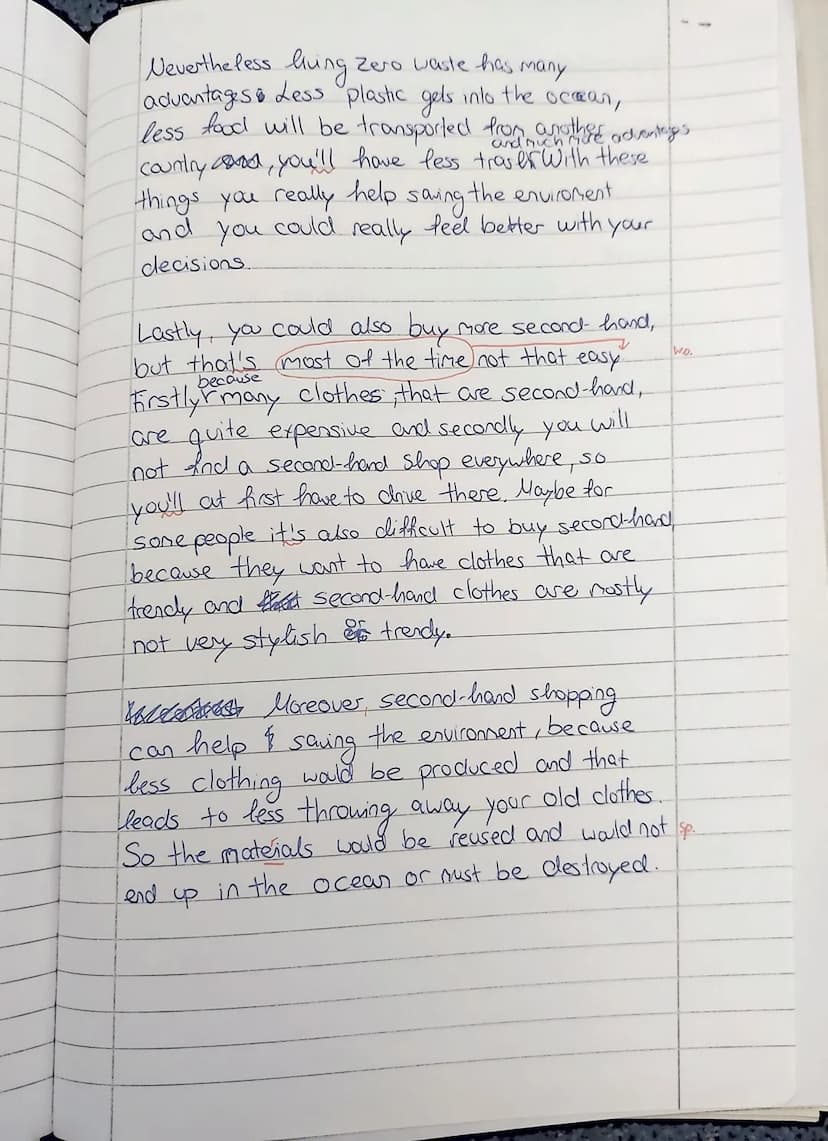 Nevertheless living zero waste has many
advantages. Less plastic gets into the ocean,
less food will be transported from another
and much more advantages
country, you'll have less trash. With these
things you really help saving the enviroment
and you could really feel better with your
decisions.
Lastly, you could also buy more second-hand,
but that's most of the time not that easy
wo.
because
Firstly many clothes, that are second-hand,
are quite expensive and secondly you will
not find a second-hand shop everywhere, so
you'll at first have to drive there. Maybe for
some people it's also difficult to buy second-hand
because they want to have clothes that are
trendy and second-hand clothes are mostly
not very stylish or trendy.
Moreover, second-hand shopping
can help saving the environment, because
less clothing would be produced and that
leads to less throwing away your old clothes.
So the materials would be reused and would not
sp.
end up in the ocean or must be destroyed.